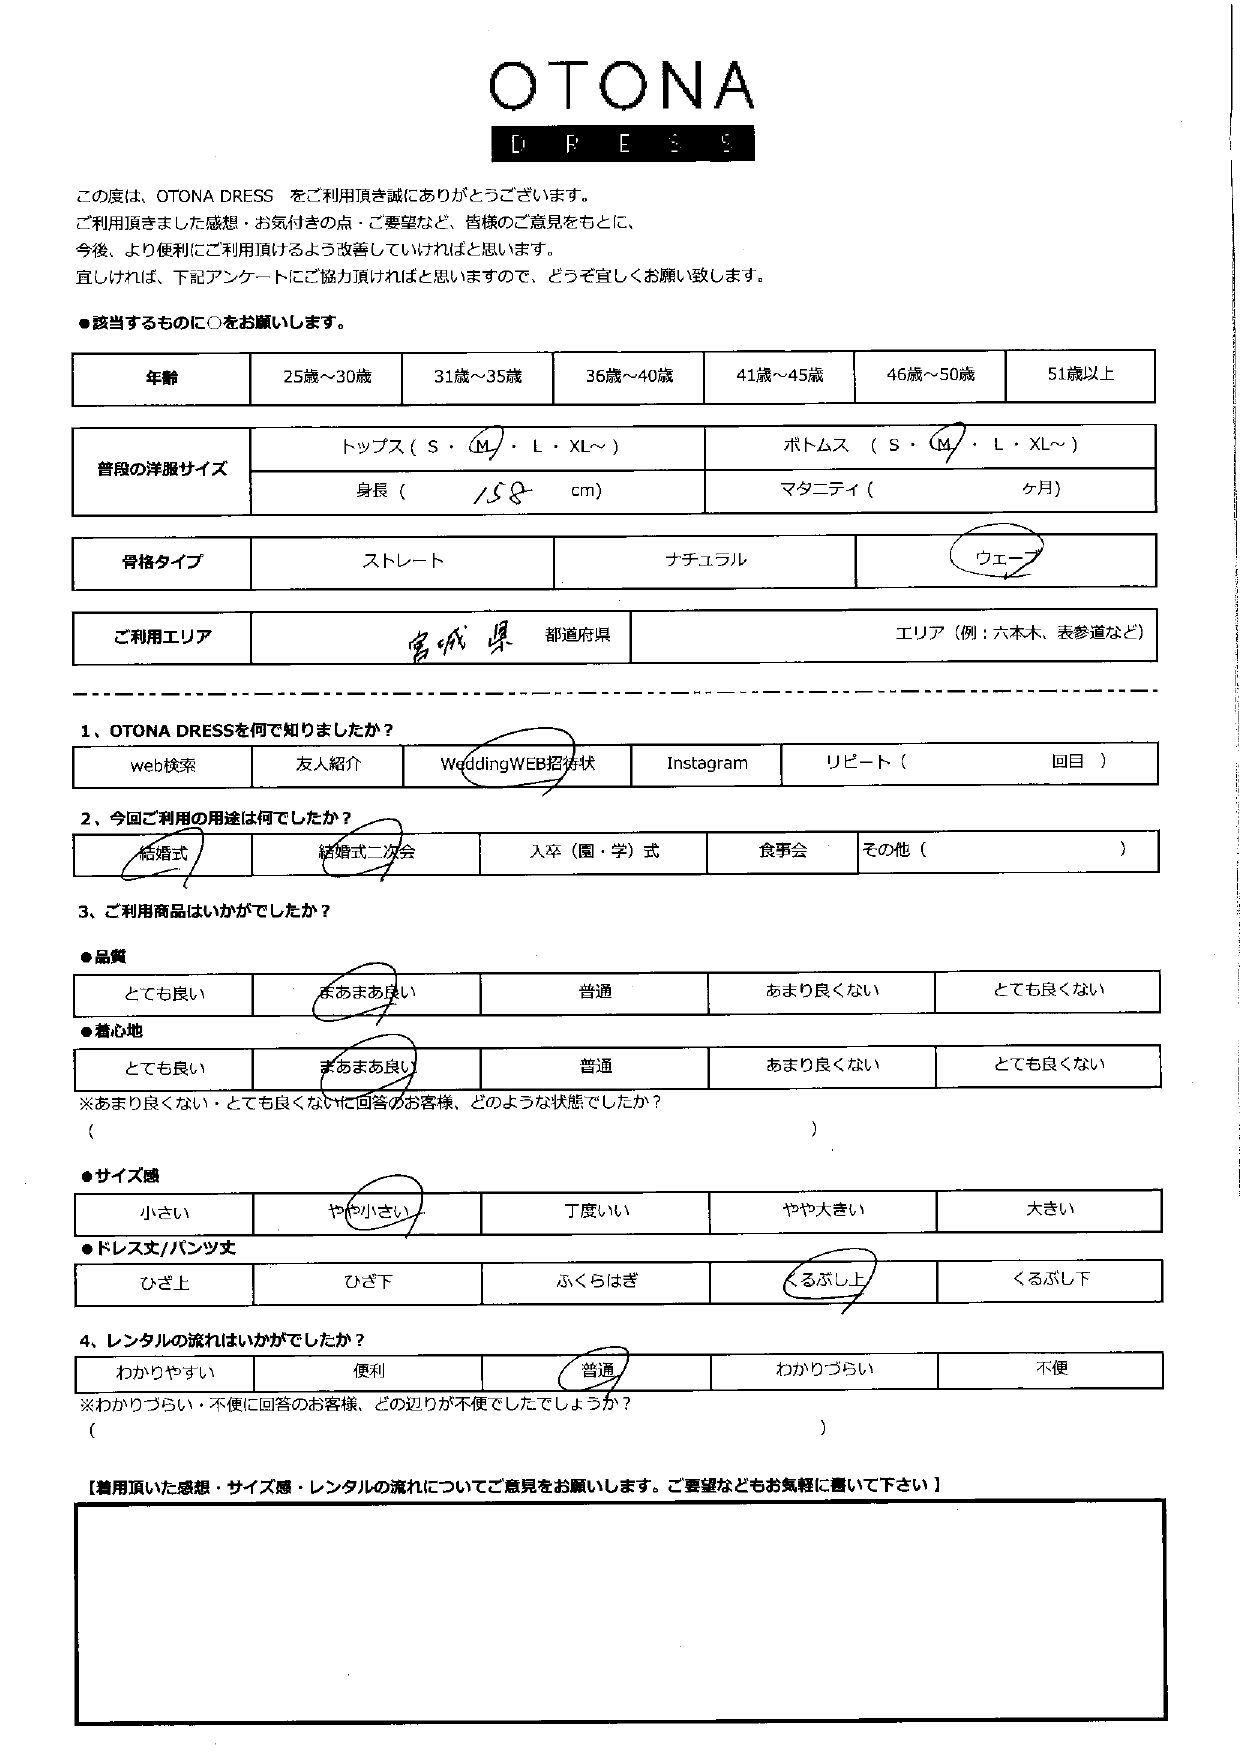 OTONA
DRESS
この度は、OTONA DRESS　をご利用頂き誠にありがとうございます。
ご利用頂きました感想・お気付きの点・ご要望など、皆様のご意見をもとに、
今後、より便利にご利用頂けるよう改善していければと思います。
宜しければ、下記アンケートにご協力頂ければと思いますので、どうぞ宜しくお願い致します。
●該当するものに○をお願いします。
年齢 25歳～30歳 31歳～35歳 36歳～40歳 41歳～45歳 46歳～50歳 51歳以上
普段の洋服サイズ トップス ( S ・ M ・ L ・ XL～ ) ボトムス ( S ・ M ・ L ・ XL～ )
身長 ( 158 cm) マタニティ ( ケ月)
骨格タイプ ストレート ナチュラル ウェーブ
ご利用エリア 宮城県 都道府県 エリア（例：六本木、表参道など）
1、OTONA DRESSを何で知りましたか？
web検索 友人紹介 WeddingWEB招待状 Instagram リピート（ 回目 ）
2、今回ご利用の用途は何でしたか？
結婚式 結婚式二次会 入卒（園・学）式 食事会 その他（ ）
3、ご利用商品はいかがでしたか？
●品質
とても良い まあまあ良い 普通 あまり良くない とても良くない
●着心地
とても良い まあまあ良い 普通 あまり良くない とても良くない
※あまり良くない・とても良くないに回答のお客様、どのような状態でしたか？
( )
●サイズ感
小さい やや小さい 丁度いい やや大きい 大きい
●ドレス丈/パンツ丈
ひざ上 ひざ下 ふくらはぎ くるぶし上 くるぶし下
4、レンタルの流れはいかがでしたか？
わかりやすい 便利 普通 わかりづらい 不便
※わかりづらい・不便に回答のお客様、どの辺りが不便でしたでしょうか？
( )
【着用頂いた感想・サイズ感・レンタルの流れについてご意見をお願いします。ご要望などもお気軽に書いて下さい 】